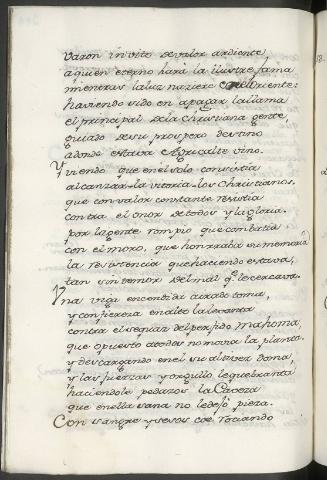 Varon invito de valor ardiente
a quien eterno hará la ilustre fama
mientras la luz naziere en el oriente:
haviendo vido en apagar la llama
el principal de la christiana gente,
guiado de su prospero destino
adonde estava Agricalte vino.
Y viendo que en el solo consistia
alcanzar la vitoria los christianos,
que con valor constante resistia
contra el onor de todos y la gloria.
por la gente rompio que combatia
con el moro, que honrraba su memoria
la resistencia que haciendo estava,
tan sin temor del mal q.e le cercava.
Una viga encendida ayrado toma,
y con fiereza en alto la levanta
contra el sequaz del perfido Mahoma,
que opuesto a todos no movia la planta
y descargando en el su altivez doma,
y las fuerzas y orgullo le quebranta
haciendole pedazos la caveza
que en ella sana no le dexó pieza.
Con sangre y sesos cae rociando